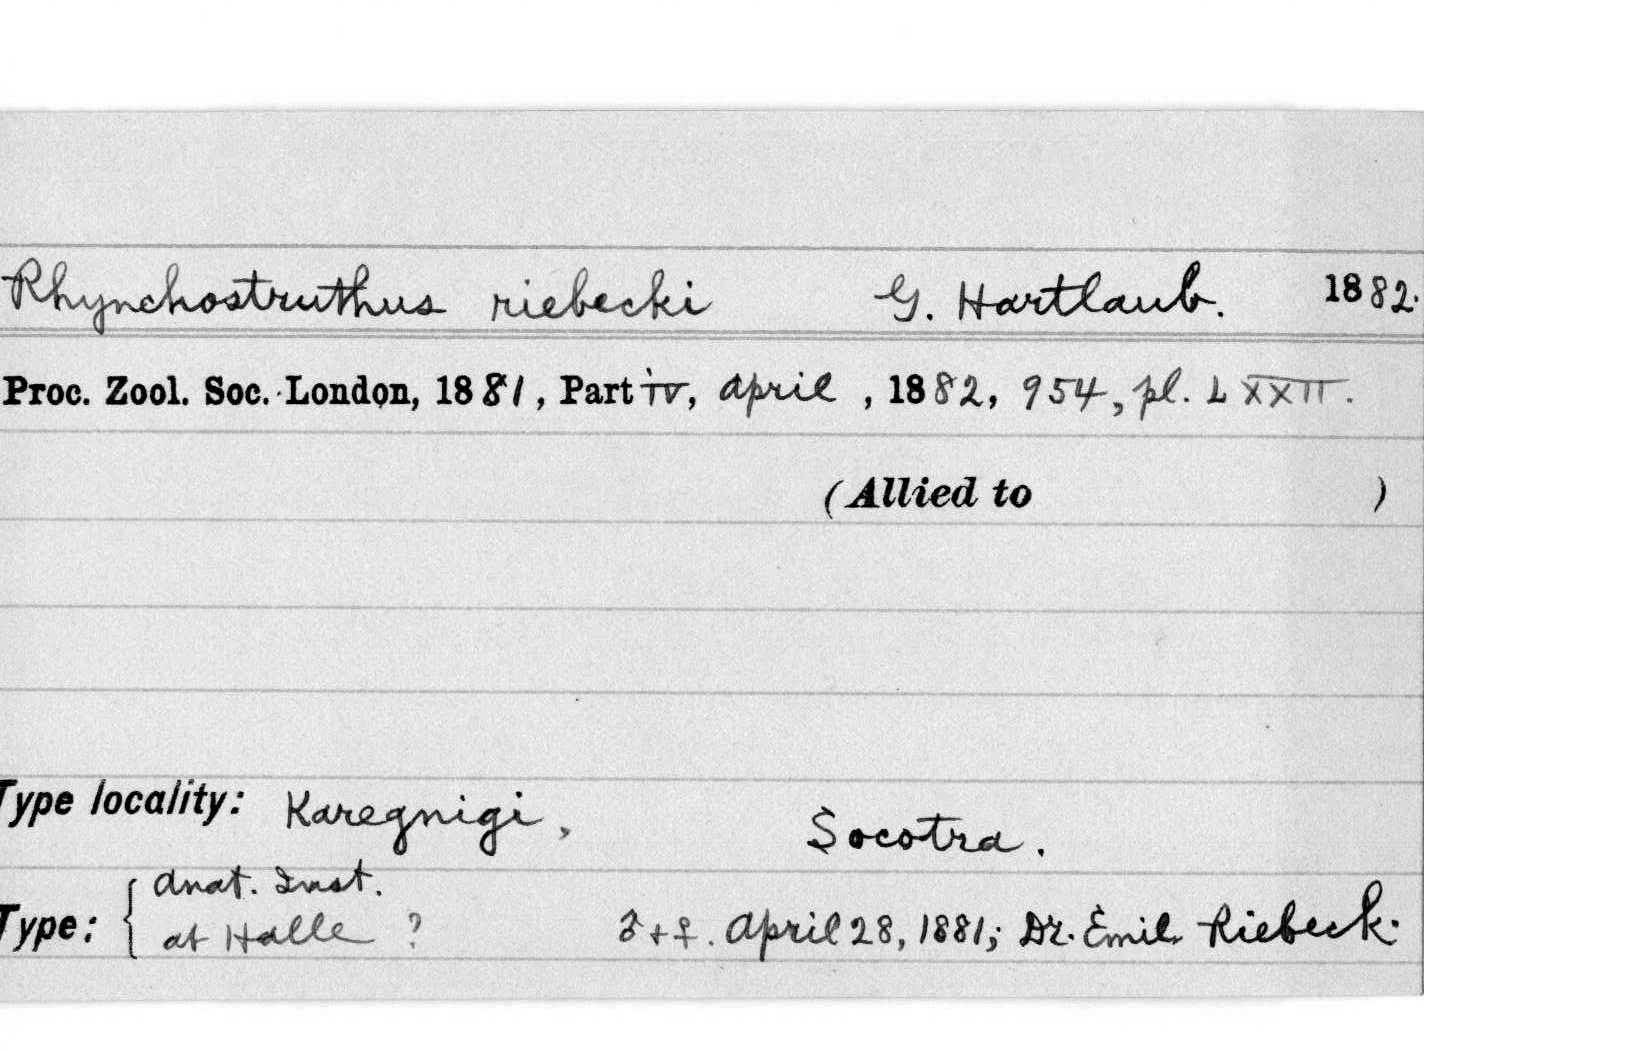 Rhynchostruthus riebecki G. Hartlaub. 1882.
Proc. Zool. Soc. London, 1881, Part iv, April, 1882, 954, pl. LXXII.
(Allied to )
Type locality: Karegnigi, Socotra.
Anat. Inst.
Type: { at Halle ? ♂+♀. April 28, 1881; Dr. Emil Riebeck.